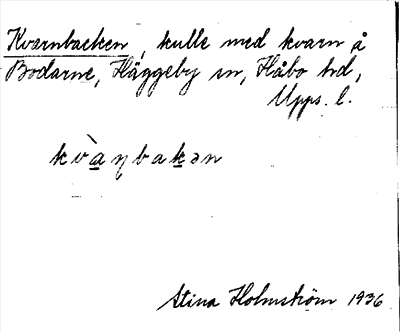 Kvarnbacken, kulle med kvarn å
Bodarne, Häggeby sn, Håbo hd,
Upps. l.
kvàŋbakən
Stina Holmström 1936